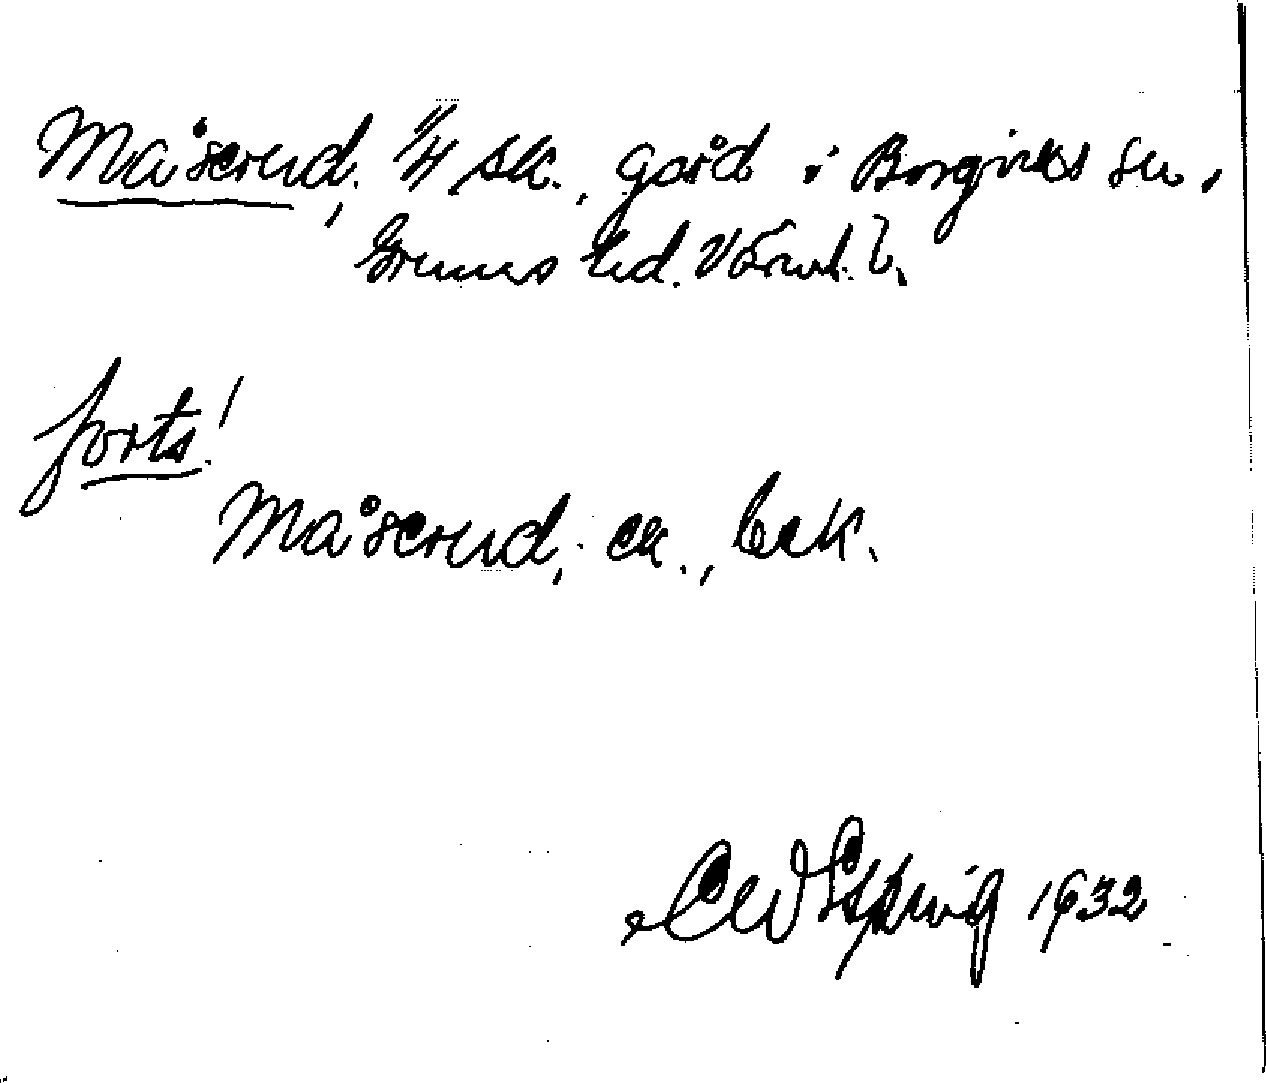 Måserud, 1/4 sk., gård i Borgviks sn,
Grums hd. Värml. l.
forts!
Måserud, ek., bek.
1932